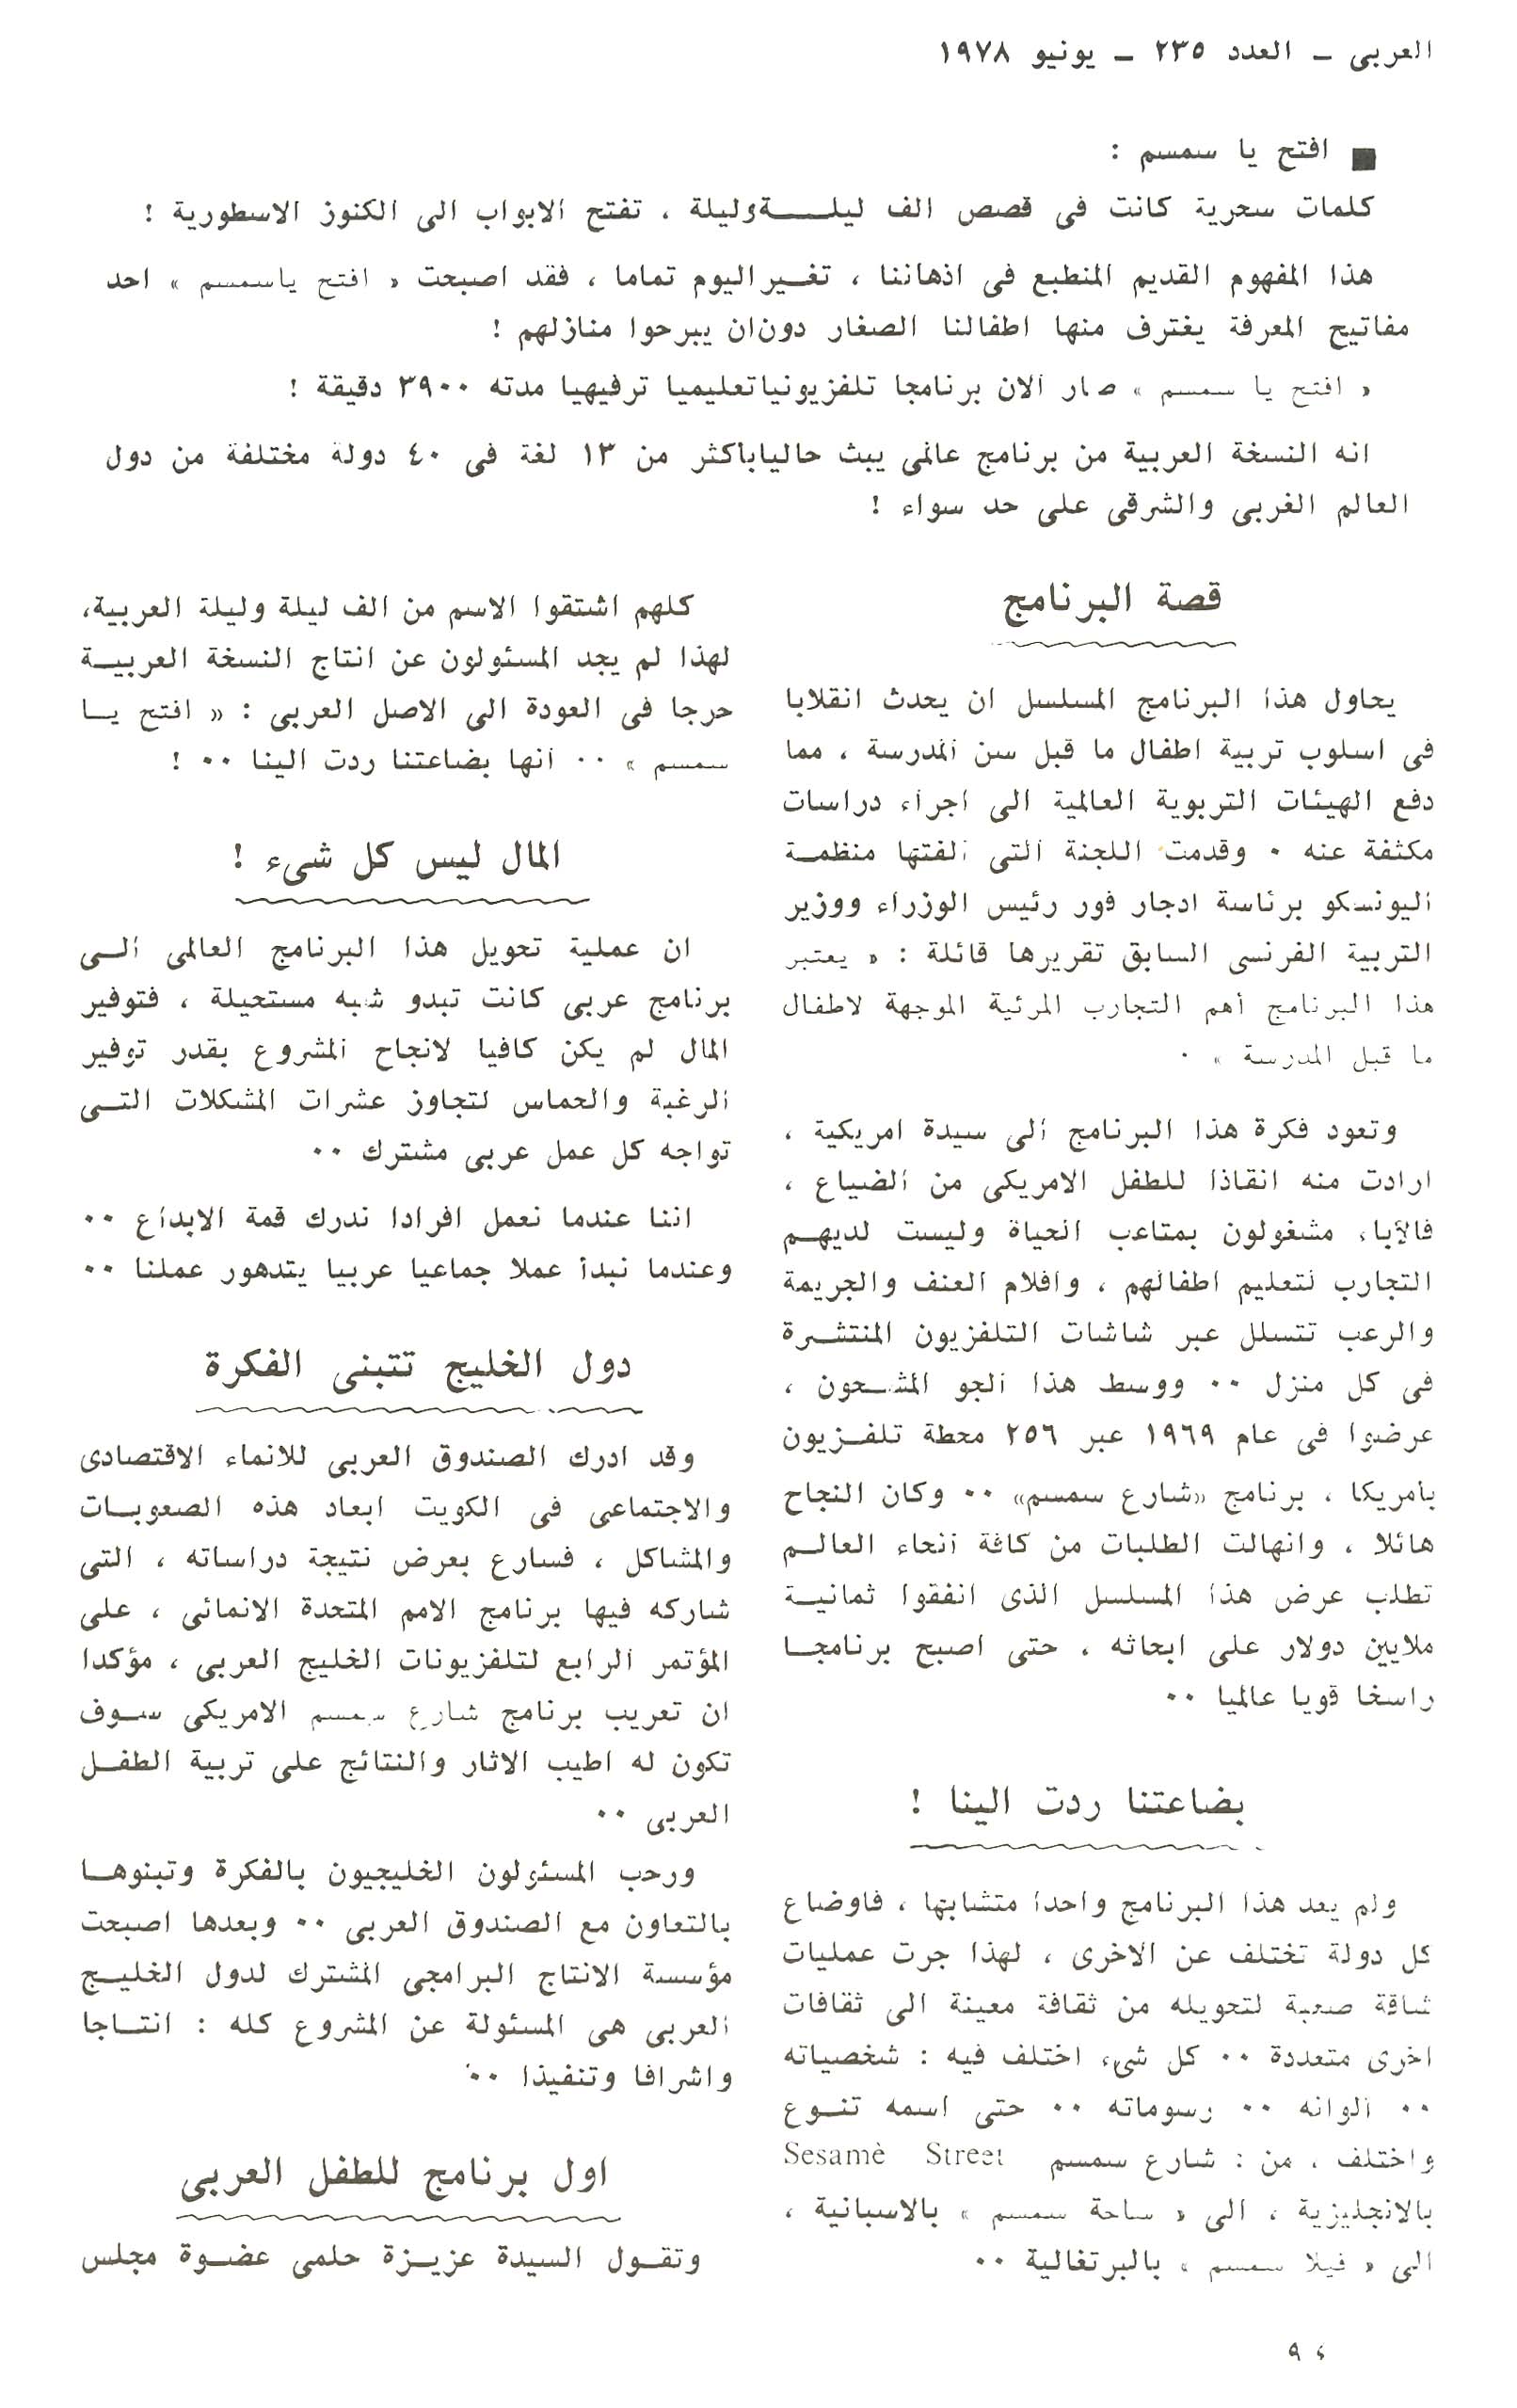 العربى – العدد ٢٣٥ – يونيو ١٩٧٨
■ افتح يا سمسم :
كلمات سحرية كانت فى قصص الف ليلــــة وليلة ، تفتح الابواب الى الكنوز الاسطورية !
هذا المفهوم القديم المنطبع فى اذهاننا ، تغـيراليوم تماما ، فقد اصبحت « افتح ياسمسم » احد
مفاتيح المعرفة يغترف منها اطفالنا الصغار دون ان يبرحوا منازلهم !
« افتح يا سمسم » صار الان برنامجا تلفزيونيا تعليميا ترفيهيا مدته ٣٩٠٠ دقيقة !
انه النسخة العربية من برنامج عالمى يبث حاليا باكثر من ١٣ لغة فى ٤٠ دولة مختلفة من دول
العالم الغربى والشرقى على حد سواء !
قصة البرنامج
يحاول هذا البرنامج المسلسل ان يحدث انقلابا
فى اسلوب تربية اطفال ما قبل سن المدرسة ، مما
دفع الهيئات التربوية العالمية الى اجراء دراسات
مكثفة عنه ٠ وقدمت اللجنة التى الفتها منظمــة
اليونسكو برئاسة ادجار فور رئيس الوزراء ووزير
التربية الفرنسى السابق تقريرها قائلة : « يعتبر
هذا البرنامج أهم التجارب المرئية الموجهة لاطفال
ما قبل المدرسة » ٠
وتعود فكرة هذا البرنامج الى سيدة امريكية ،
ارادت منه انقاذا للطفل الامريكى من الضياع ،
فالآباء مشغولون بمتاعب الحياة وليست لديهـم
التجارب لتعليم اطفالهم ، وافلام العنف والجريمة
والرعب تتسلل عبر شاشات التلفزيون المنتشـرة
فى كل منزل ٠٠ ووسط هذا الجو المشـحون ،
عرضوا فى عام ١٩٦٩ عبر ٢٥٦ محطة تلفـزيون
بامريكا ، برنامج «شارع سمسم» ٠٠ وكان النجاح
هائلا ، وانهالت الطلبات من كافة انحاء العالـم
تطلب عرض هذا المسلسل الذى انفقوا ثمانيـة
ملايين دولار على ابحاثه ، حتى اصبح برنامجـا
راسخا قويا عالميا ٠٠
بضاعتنا ردت الينا !
ولم يعد هذا البرنامج واحدا متشابها ، فاوضاع
كل دولة تختلف عن الاخرى ، لهذا جرت عمليات
شاقة صعبة لتحويله من ثقافة معينة الى ثقافات
اخرى متعددة ٠٠ كل شىء اختلف فيه : شخصياته
٠٠ الوانه ٠٠ رسوماته ٠٠ حتى اسمه تنـوع
واختلف ، من : شارع سمسم Sesamè Street
بالانجليزية ، الى « ساحة سمسم » بالاسبانية ،
الى « فيلا سمسم » بالبرتغالية ٠٠
كلهم اشتقوا الاسم من الف ليلة وليلة العربية،
لهذا لم يجد المسئولون عن انتاج النسخة العربيـة
حرجا فى العودة الى الاصل العربى : « افتح يـا
سمسم » ٠٠ انها بضاعتنا ردت الينا ٠٠ !
المال ليس كل شىء !
ان عملية تحويل هذا البرنامج العالمى الـى
برنامج عربى كانت تبدو شبه مستحيلة ، فتوفير
المال لم يكن كافيا لانجاح المشروع بقدر توفير
الرغبة والحماس لتجاوز عشرات المشكلات التـى
تواجه كل عمل عربى مشترك ٠٠
اننا عندما نعمل افرادا ندرك قمة الابداع ٠٠
وعندما نبدأ عملا جماعيا عربيا يتدهور عملنا ٠٠
دول الخليج تتبنى الفكرة
وقد ادرك الصندوق العربى للانماء الاقتصادى
والاجتماعى فى الكويت ابعاد هذه الصعوبـات
والمشاكل ، فسارع بعرض نتيجة دراساته ، التى
شاركه فيها برنامج الامم المتحدة الانمائى ، على
المؤتمر الرابع لتلفزيونات الخليج العربى ، مؤكدا
ان تعريب برنامج شارع سمسم الامريكى سـوف
تكون له اطيب الاثار والنتائج على تربية الطفـل
العربى ٠٠
ورحب المسئولون الخليجيون بالفكرة وتبنوهـا
بالتعاون مع الصندوق العربى ٠٠ وبعدها اصبحت
مؤسسة الانتاج البرامجى المشترك لدول الخليـج
العربى هى المسئولة عن المشروع كله : انتـاجا
واشرافا وتنفيذا ٠٠
اول برنامج للطفل العربى
وتقـول السيدة عزيـزة حلمى عضـوة مجلس
٩٤